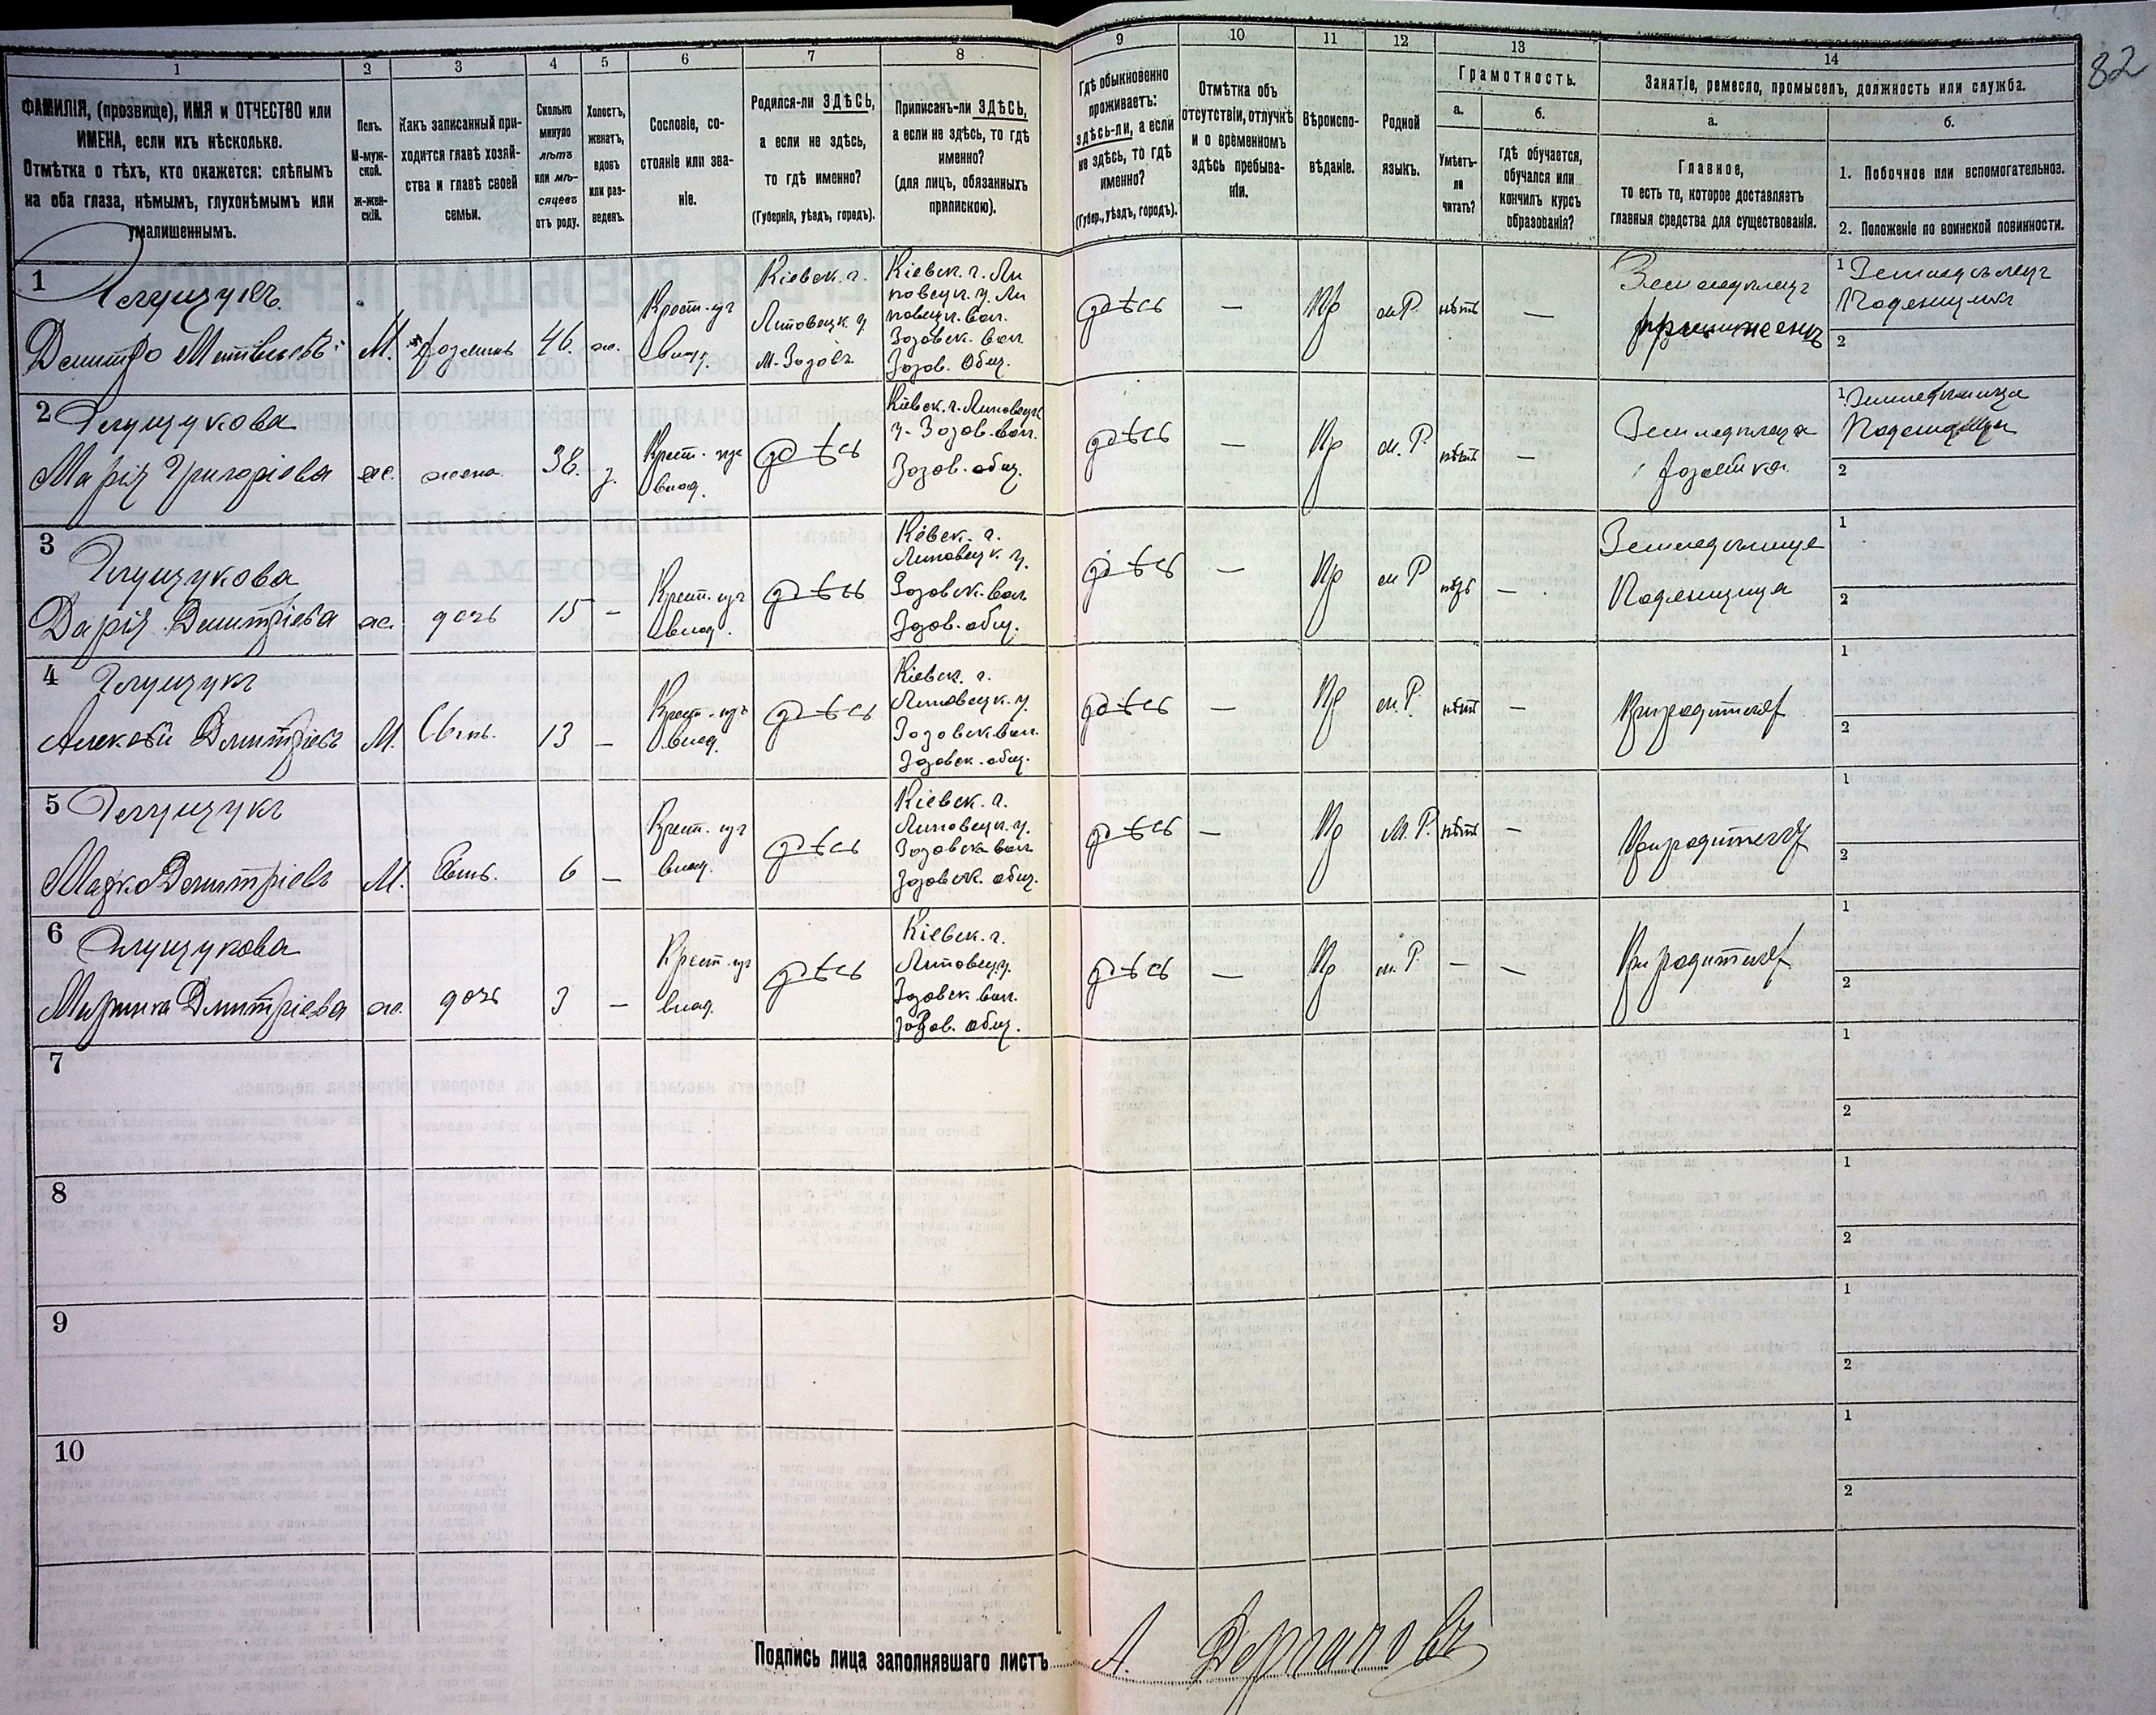 82
1
2
3
4
5
6
7
8
9
10
11
12
13
14
ФАМИЛІЯ, (прозвище), ИМЯ и ОТЧЕСТВО или
ИМЕНА, если ихъ нѣсколько.
Отмѣтка о тѣхъ, кто окажется: слѣпымъ
на оба глаза, нѣмымъ, глухонѣмымъ или
умалишеннымъ.
Полъ.
М-муж-
ской.
Ж-жен-
скій.
Какъ записанный при-
ходится главѣ хозяй-
ства и главѣ своей
семьи.
Сколько
минуло
лѣтъ
или мѣ-
сяцевъ
отъ роду.
Холостъ,
женатъ,
вдовъ
или раз-
веденъ.
Сословіе, со-
стояніе или зва-
ніе.
Родился-ли ЗДѢСЬ,
а если не здѣсь,
то гдѣ именно?
(Губернія, уѣздъ, городъ).
Приписанъ-ли ЗДѢСЬ,
а если не здѣсь, то гдѣ
именно?
(для лицъ, обязанныхъ
припискою).
Гдѣ обыкновенно
проживаетъ:
здѣсь-ли, а если
не здѣсь, то гдѣ
именно?
(Губер., уѣздъ, городъ).
Отмѣтка объ
отсутствіи, отлучкѣ
и о временномъ
здѣсь пребыва-
ніи.
Вѣроиспо-
вѣданіе.
Родной
языкъ.
Грамотность.
а.
Умѣетъ-
ли
читать?
б.
гдѣ обучается,
обучался или
кончилъ курсъ
образованія?
Занятіе, ремесло, промыселъ, должность или служба.
а.
Главное,
то есть то, которое доставляетъ
главныя средства для существованія.
б.
1. Побочное или вспомогательное.
2. Положеніе по воинской повинности.
1
Дмитро Матвѣевъ
М.
Хозяинъ
46.
ж.
Крест. изъ
влад.
Кіевск. г.
Липовецк. у.
М. Зозовъ
Кіевск. г. Ли
повецк. у. Ли
повецк. вол.
Зозовск. вол.
Зозов. Общ.
здѣсь
—
Пр
м Р.
нѣтъ
—
Земледѣлецъ
1 Земледѣлецъ
Поденщикъ
2
2
Марія Григоріева
ж.
жена
38.
з.
Крест. изъ
влад.
здѣсь
Кіевск. г. Липовецк.
у. Зозов. вол.
Зозов. общ.
здѣсь
—
Пр
м. Р.
нѣтъ
—
хозяйка
1
2
3
Дарія Дмитріева
ж.
дочь
15
—
Крест. изъ
влад.
здѣсь
Кіевск. г.
Липовецк. у.
Зозовск. вол.
Зозов. общ.
здѣсь
—
Пр
м Р
—
Поденщица
1
2
4
Алексѣй Дмитріевъ
М.
Сынъ.
13
—
Крест. изъ
влад.
здѣсь
Кіевск. г.
Липовецк. у.
Зозовск вол.
Зозовск. общ.
здѣсь
—
Пр
м. Р.
нѣтъ
—
При родителях
1
2
5
Марко Дмитріевъ
М.
Сынъ.
6
—
Крест. изъ
влад.
здѣсь
Кіевск. г.
Липовецк. у.
Зозовск вол
Зозовск. общ.
здѣсь
—
Пр
М. Р.
нѣтъ
—
При родителях
1
2
6
Дмитріева
ж.
дочь
3
—
Крест. изъ
влад.
здѣсь
Кіевск. г.
Липовец. у.
Зозовск вол.
Зозов. общ.
здѣсь
—
Пр
м. Р.
—
—
При родителях
1
2
7
1
2
8
1
2
9
1
2
10
1
2
Подпись лица заполнявшаго листъ